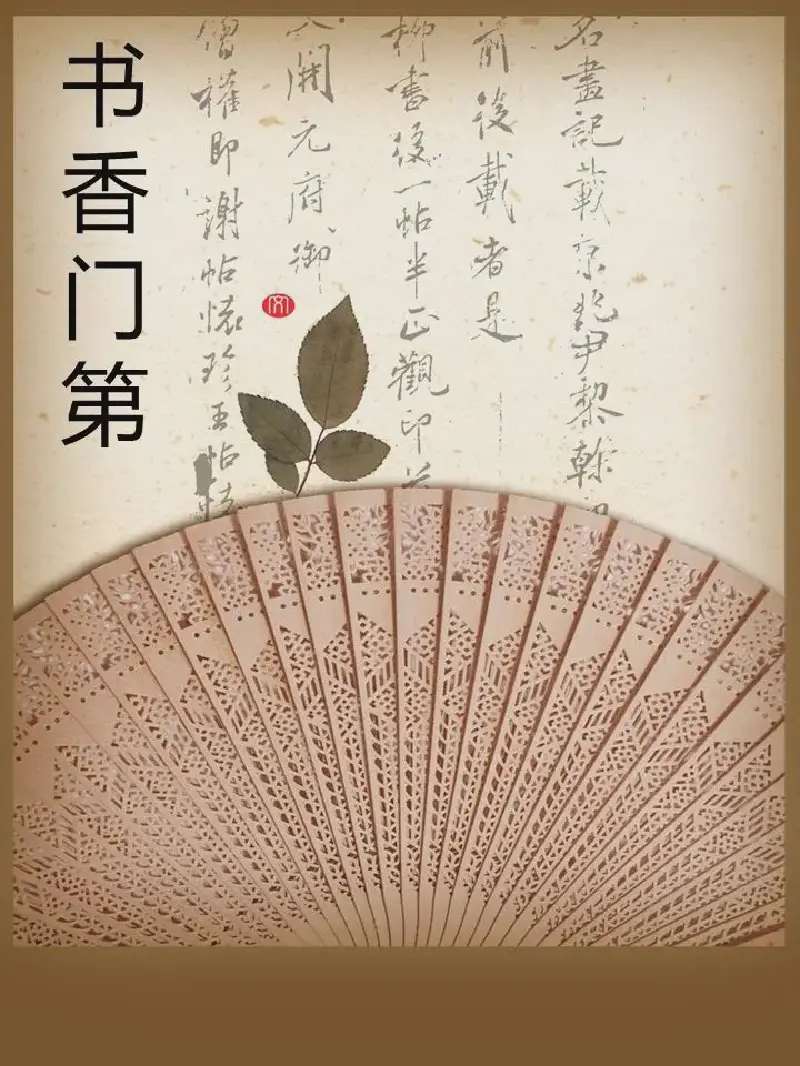 书香门第
名畫記載京兆尹黎幹
前後載者是
柳書後一帖半正觀印
開元府御
僧權即謝帖懷珍王帖
文